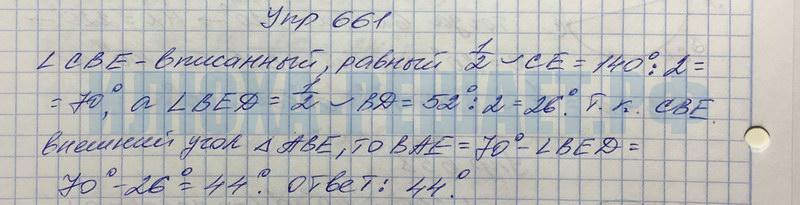 Упр 661
∠CBE - вписанный, равный 1/2 ◡CE = 140° : 2 =
= 70°, а ∠BED = 1/2 ◡BD = 52° : 2 = 26°. Т. к. CBE
внешний угол △ABE, то BAE = 70° - ∠BED =
70° - 26° = 44°. ответ: 44°.